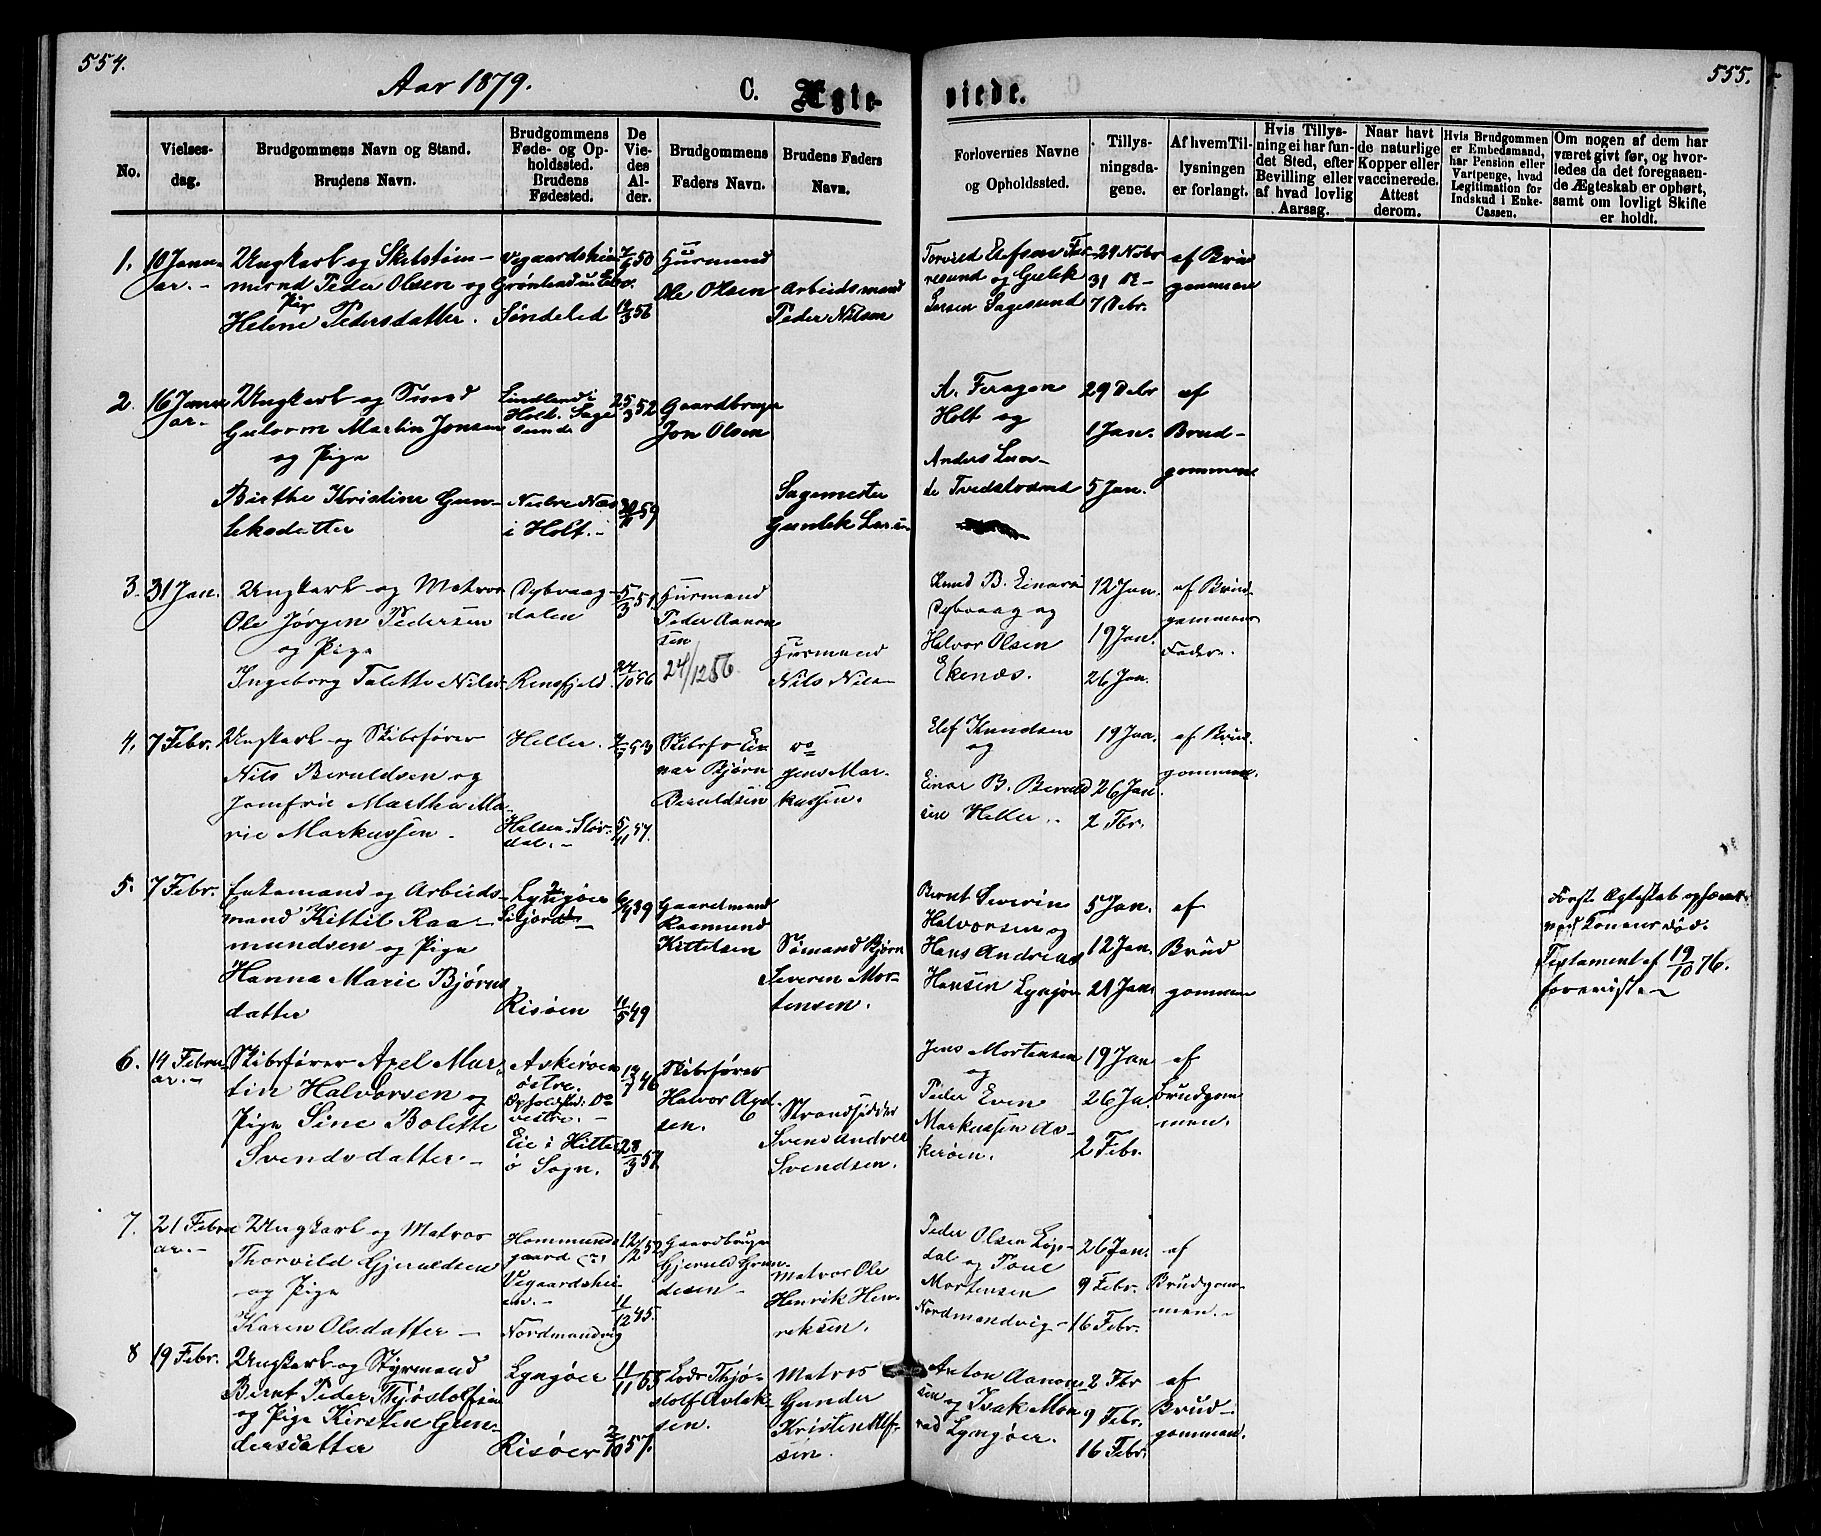 554.
Aar 1879.
C. Ægte-
viede.
555.
No.
Vielses-
dag.
Brudgommens Navn og Stand.
Brudens Navn.
Brudgommens
Føde- og Op-
holdssted.
Brudens
Fødested.
De
Vie-
des
Al-
der.
Brudgommens
Faders Navn.
Brudens Faders
Navn.
Forlovernes Navne
og Opholdssted.
Tillys-
ningsda-
gene.
Af hvem Til-
lysningen
er forlangt.
Hvis Tillys-
ning ei har fun-
det Sted, efter
Bevilling eller
af hvad lovlig
Aarsag.
Naar havt
de naturlige
Kopper eller
vaccinerede.
Attest
derom.
Hvis Brudgommen
er Embedsmand,
har Pension eller
Vartpenge, hvad
Legitimation for
Indskud i Enke-
Cassen.
Om nogen af dem har
været givt før, og hvor-
ledes da det foregaaen-
de Ægteskab er ophørt,
samt om lovligt Skifte
er holdt.
1.
10 Janu-
ar. -
Ungkarl og
Peder Olsen og
Pige
Helene Pedersdatter.
Søndeled
50
56
Husmand
Ole Olsen
Arbeidsmand
Peder Nilsen
og Gulek
Larsen Sagesund
29 Nvbr
31
7 Debr.
af Brud
gommen
2.
16 Janu
ar -
Ungkarl og Smed
Gutorm Martin Jonsen
og Pige
Birthe Kristine Gun-
leksdatter
Lindland i
Holt. Sage
sund
Nedre Næs
i Holt. -
25/3 52
59
Gaardbruger
Jon Olsen
Sagemester
Gunlek Larsen
A. Feragen
Holt og
Anders
Tvedestrand
29 Debr
1 Jan.
5 Jan.
af
Brud-
gommen.
3.
31 Jan.
Ungkarl og Matros
Ole Jørgen Pedersen
og Pige
Ingeborg Talette Nilsd.
Dybvaag-
dalen
5/3 51
27/10 56
Husmand
Peder Aanon
sen
24/12 56
Husmand
Nils Nils-
Knud B. Einars
Dybvaag og
Halvor Olsen
Ekenæs.
12 Jan.
19 Jan.
26 Jan.
af Brud
gommens
Fader.
4.
7 Febr.
Ungkarl og Skibsfører
Nils Beruldsen og
Jomfrue Martha Ma-
rie Markussen -
Heller.
53
5/11 57.
Skibsfø Ei-
nar Bjørn
Beruldsen
Do
Jens Mar-
kussen.
Elef Knudsen
og
Einar B. Beruld
sen Heller.
19 Jan.
26 Jan.
2 Fbr.
af Brud.
gommen.
5.
7 Febr.
Enkemand og Arbeids-
mand Kittil Raa-
mundsen og Pige
Hanna Marie Bjørns
datter
Lyngøer
Risøen
39
49
Gaardmand
Raamund
Kittelsen
Sømand Bjørn
Severin Mor-
tensen.
Bernt Severin
Halvorsen og
Hans Andreas
Hansen Lyngør
5 Jan.
12 Jan.
21 Jan.
af
Brud
gommen
Første Ægteskab ophævet
ved Konens død.
Testament af 19/10 76.
forevist -
6.
14 Febru
ar. -
Skibsfører Axel Mar-
tin Halvorsen og
Pige Sine Bolette
Svendsdatter. -
Askerøen
østre.
Opholdsted: Do
vestre. -
Eie i Hitter
ø Sogn.
46
28/3 57
Skibsfører
Halvor Axel-
sen.
Strandsidder
Svend Andreas
Svendsen.
Jens Mortensen
og
Peder Even
Markussen As-
kerøen.
19 Jan
26 Ja.
2 Febr.
af
Brudgom
men.
7.
21 Febru
ar. -
Ungkarl og Matros
Thorvild Gjeruldsen
og Pige
Karen Olsdatter -
Hommunds
gaard (?)
Vegaardshei-
en. -
Nordmandvig
12/12 52
11/12 45.
Gaardbruger
Gjeruld Gun-
desen -
Matros Ole
Henrik Hen-
riksen.
Peder Olsen Løv-
dal og Tone
Mortensen
Nordmandvig -
26 Jan.
9 Febr.
16 Febr.
af
Brudgom-
men. -
8
19 Febr.
Ungkarl og Styrmand
Bernt Peder Thjøstolfsen
og Pige Kirsten Gun-
dersdatter
Lyngøer
Risøer
11/11 55
2/10 57.
Lods Thjø-
stolf Aslak-
sen.
Matros
Gunder
Kristen Alf-
sen.
Anton Aanon-
sen og Isak Mon
rad Lyngøer.
2 Fbr
9 Febr.
16 Febr.
af
Brud-
gommen.